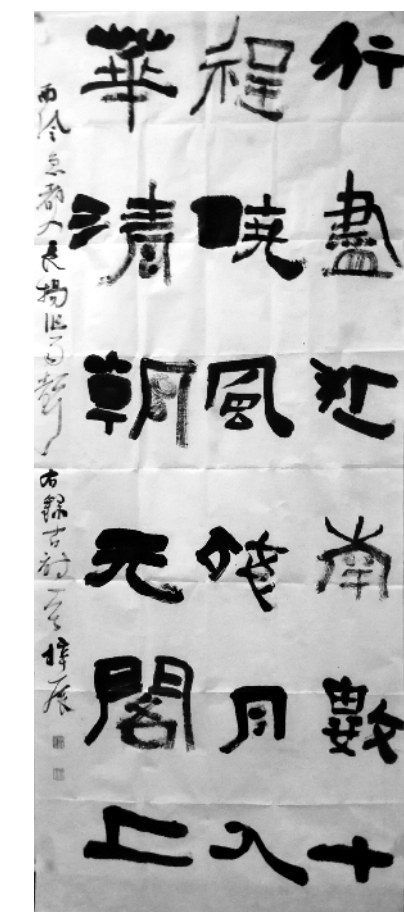 行盡江南數十
程曉風殘月入
華清朝元閣上
西風急都入長楊作雨聲 右錄古詩一首